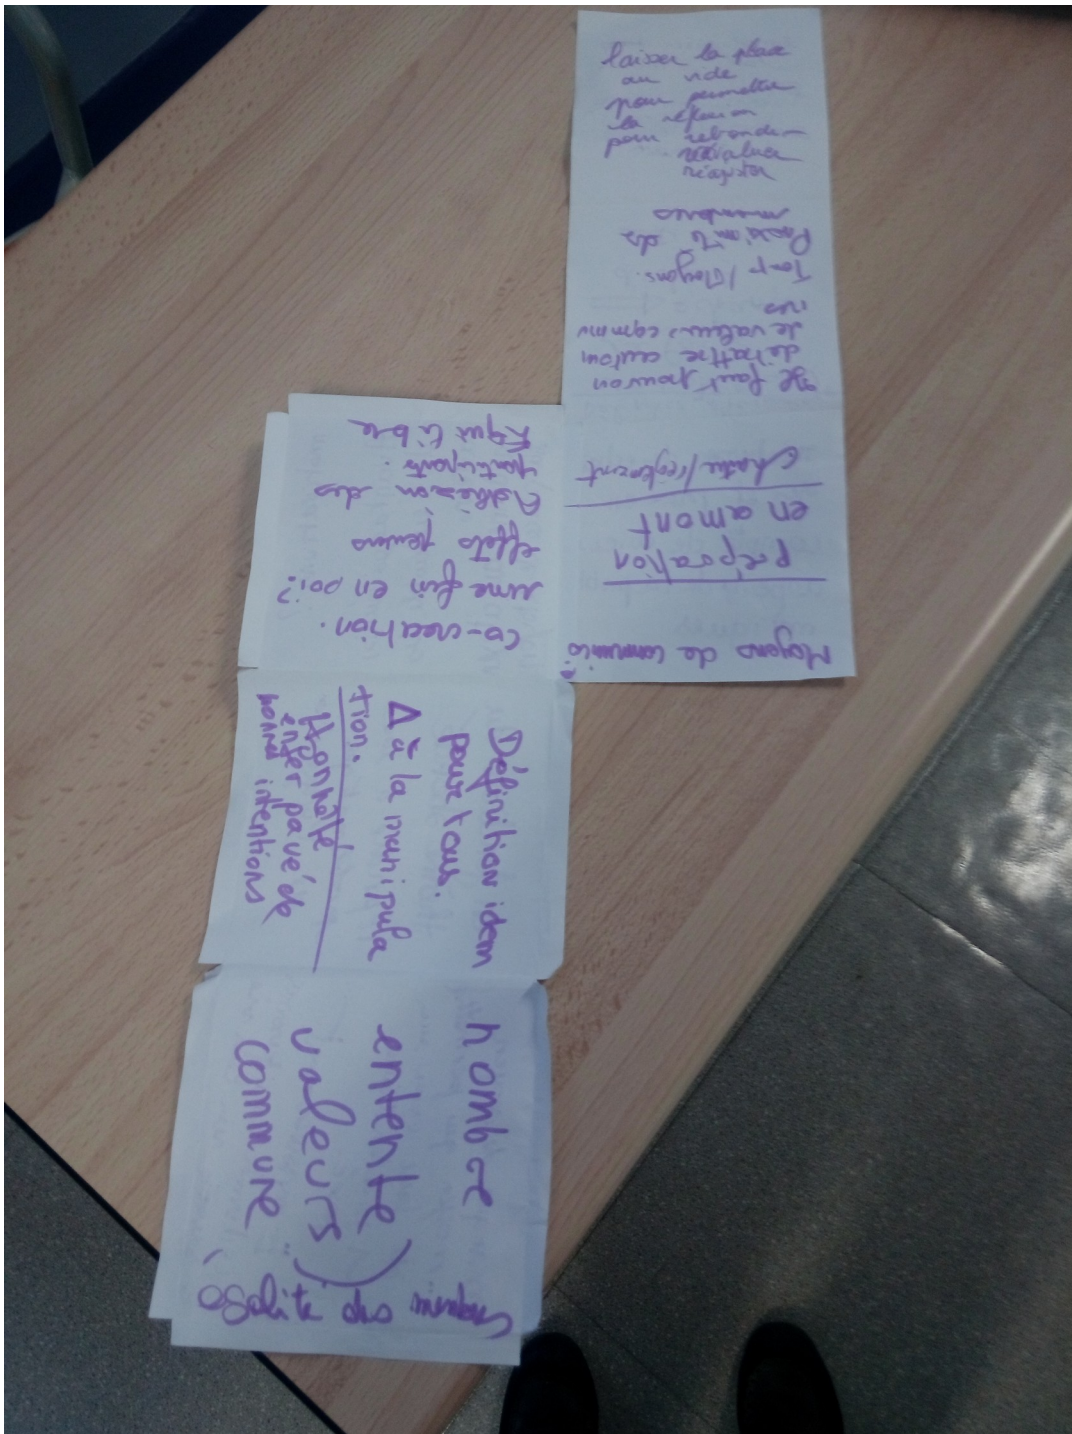 laisser la place
au vide
pour permettre
la réflexion
pour rebondir
réévaluer
réajuster
Moyens de communica°
préparation
en amont
Charte/règlement
Il faut pouvoir
débattre autour
de valeurs commu
nes
Temp/Moyens.
Proximité des
membres
co-création.
une fin en soi?
effets
Adhésion des
participants.
Equilibre
Définition idem
pour tous.
Δ à la manipula
tion.
Honnêté
enfer pavé de
bonnes intentions
nombre
entente
valeurs)
commune
égalité des membres